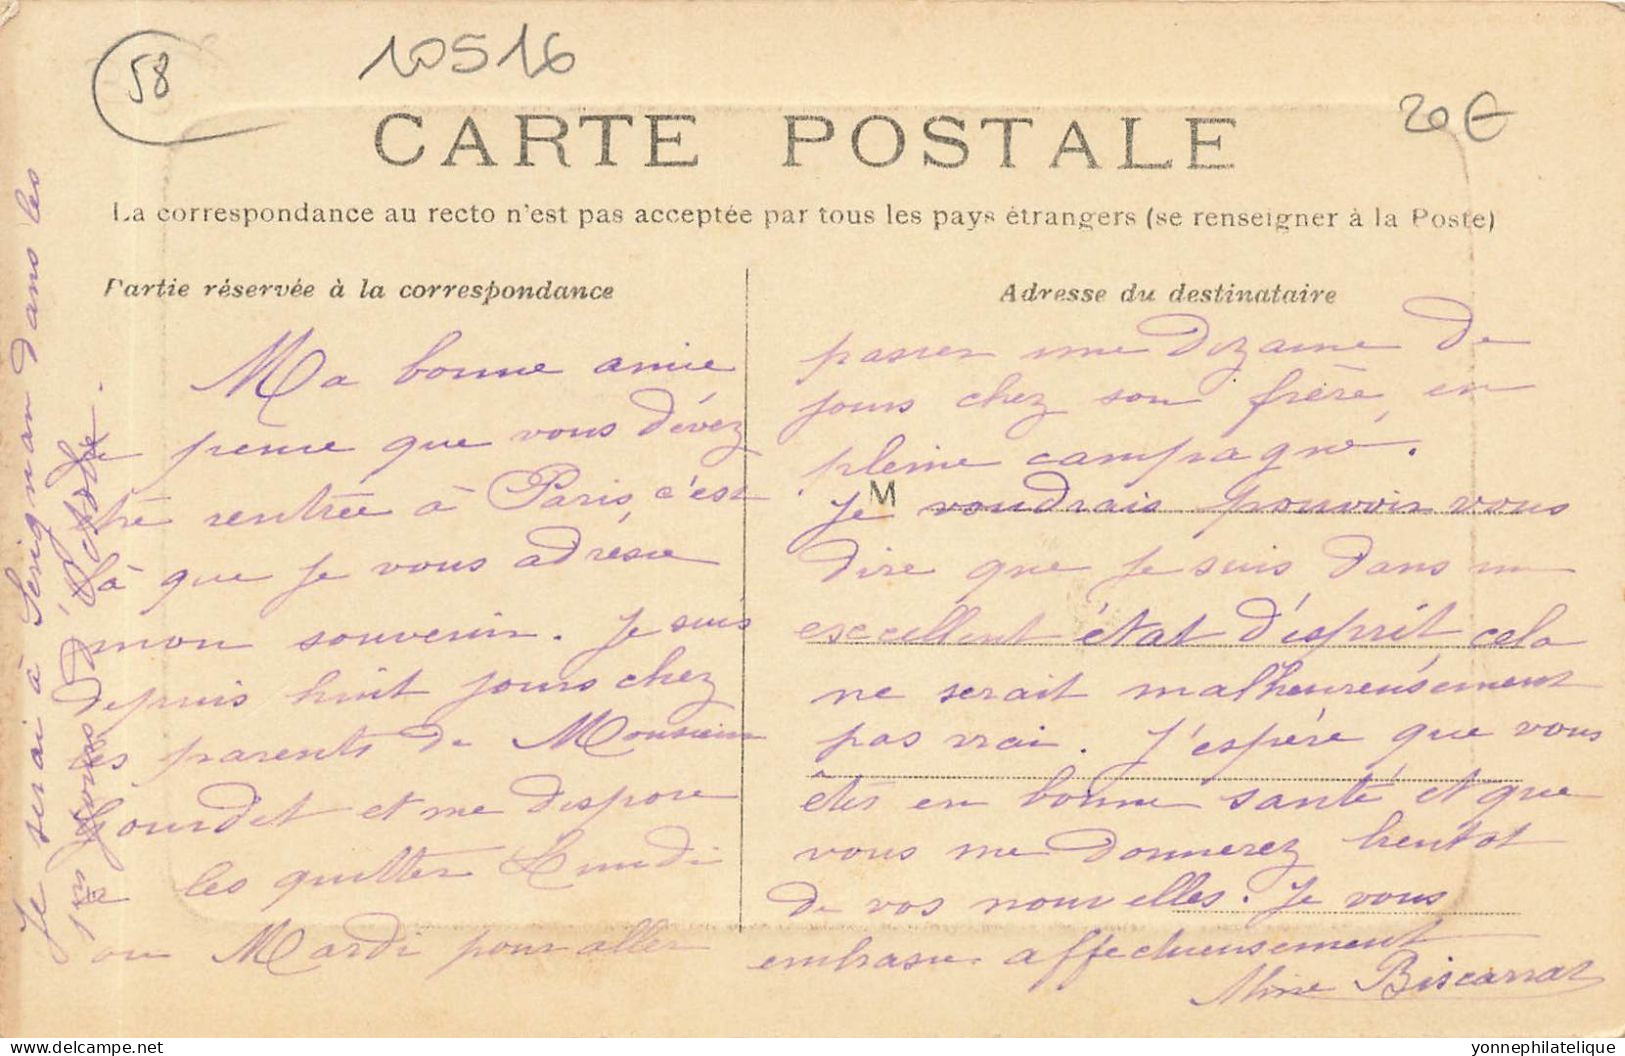 58
10516
20€
CARTE POSTALE
La correspondance au recto n'est pas acceptée par tous les pays étrangers (se renseigner à la Poste)
Partie réservée à la correspondance
Adresse du destinataire
Ma bonne amie
Je pense que vous dévez
être rentrée à Paris, c'est
là que je vous adresse
mon souvenir. Je suis
depuis huit jours chez
les parents de Monsieur
Gourdet et me dispose
à les quitter Lundi
ou Mardi pour aller
passer une dizaine de
jours chez son frère, en
pleine campagne.
M
Je voudrais pouvoir vous
dire que je suis dans un
excellent état d'esprit, cela
ne serait malheureusement
pas vrai. J'espère que vous
êtes en bonne santé et que
vous me donnerez bientot
de vos nouvelles. Je vous
embrasse affectueusement
Mme Biscarrat
Je serai à Serignan dans les
1ers jours d'Octobre.
yonnephilatelique